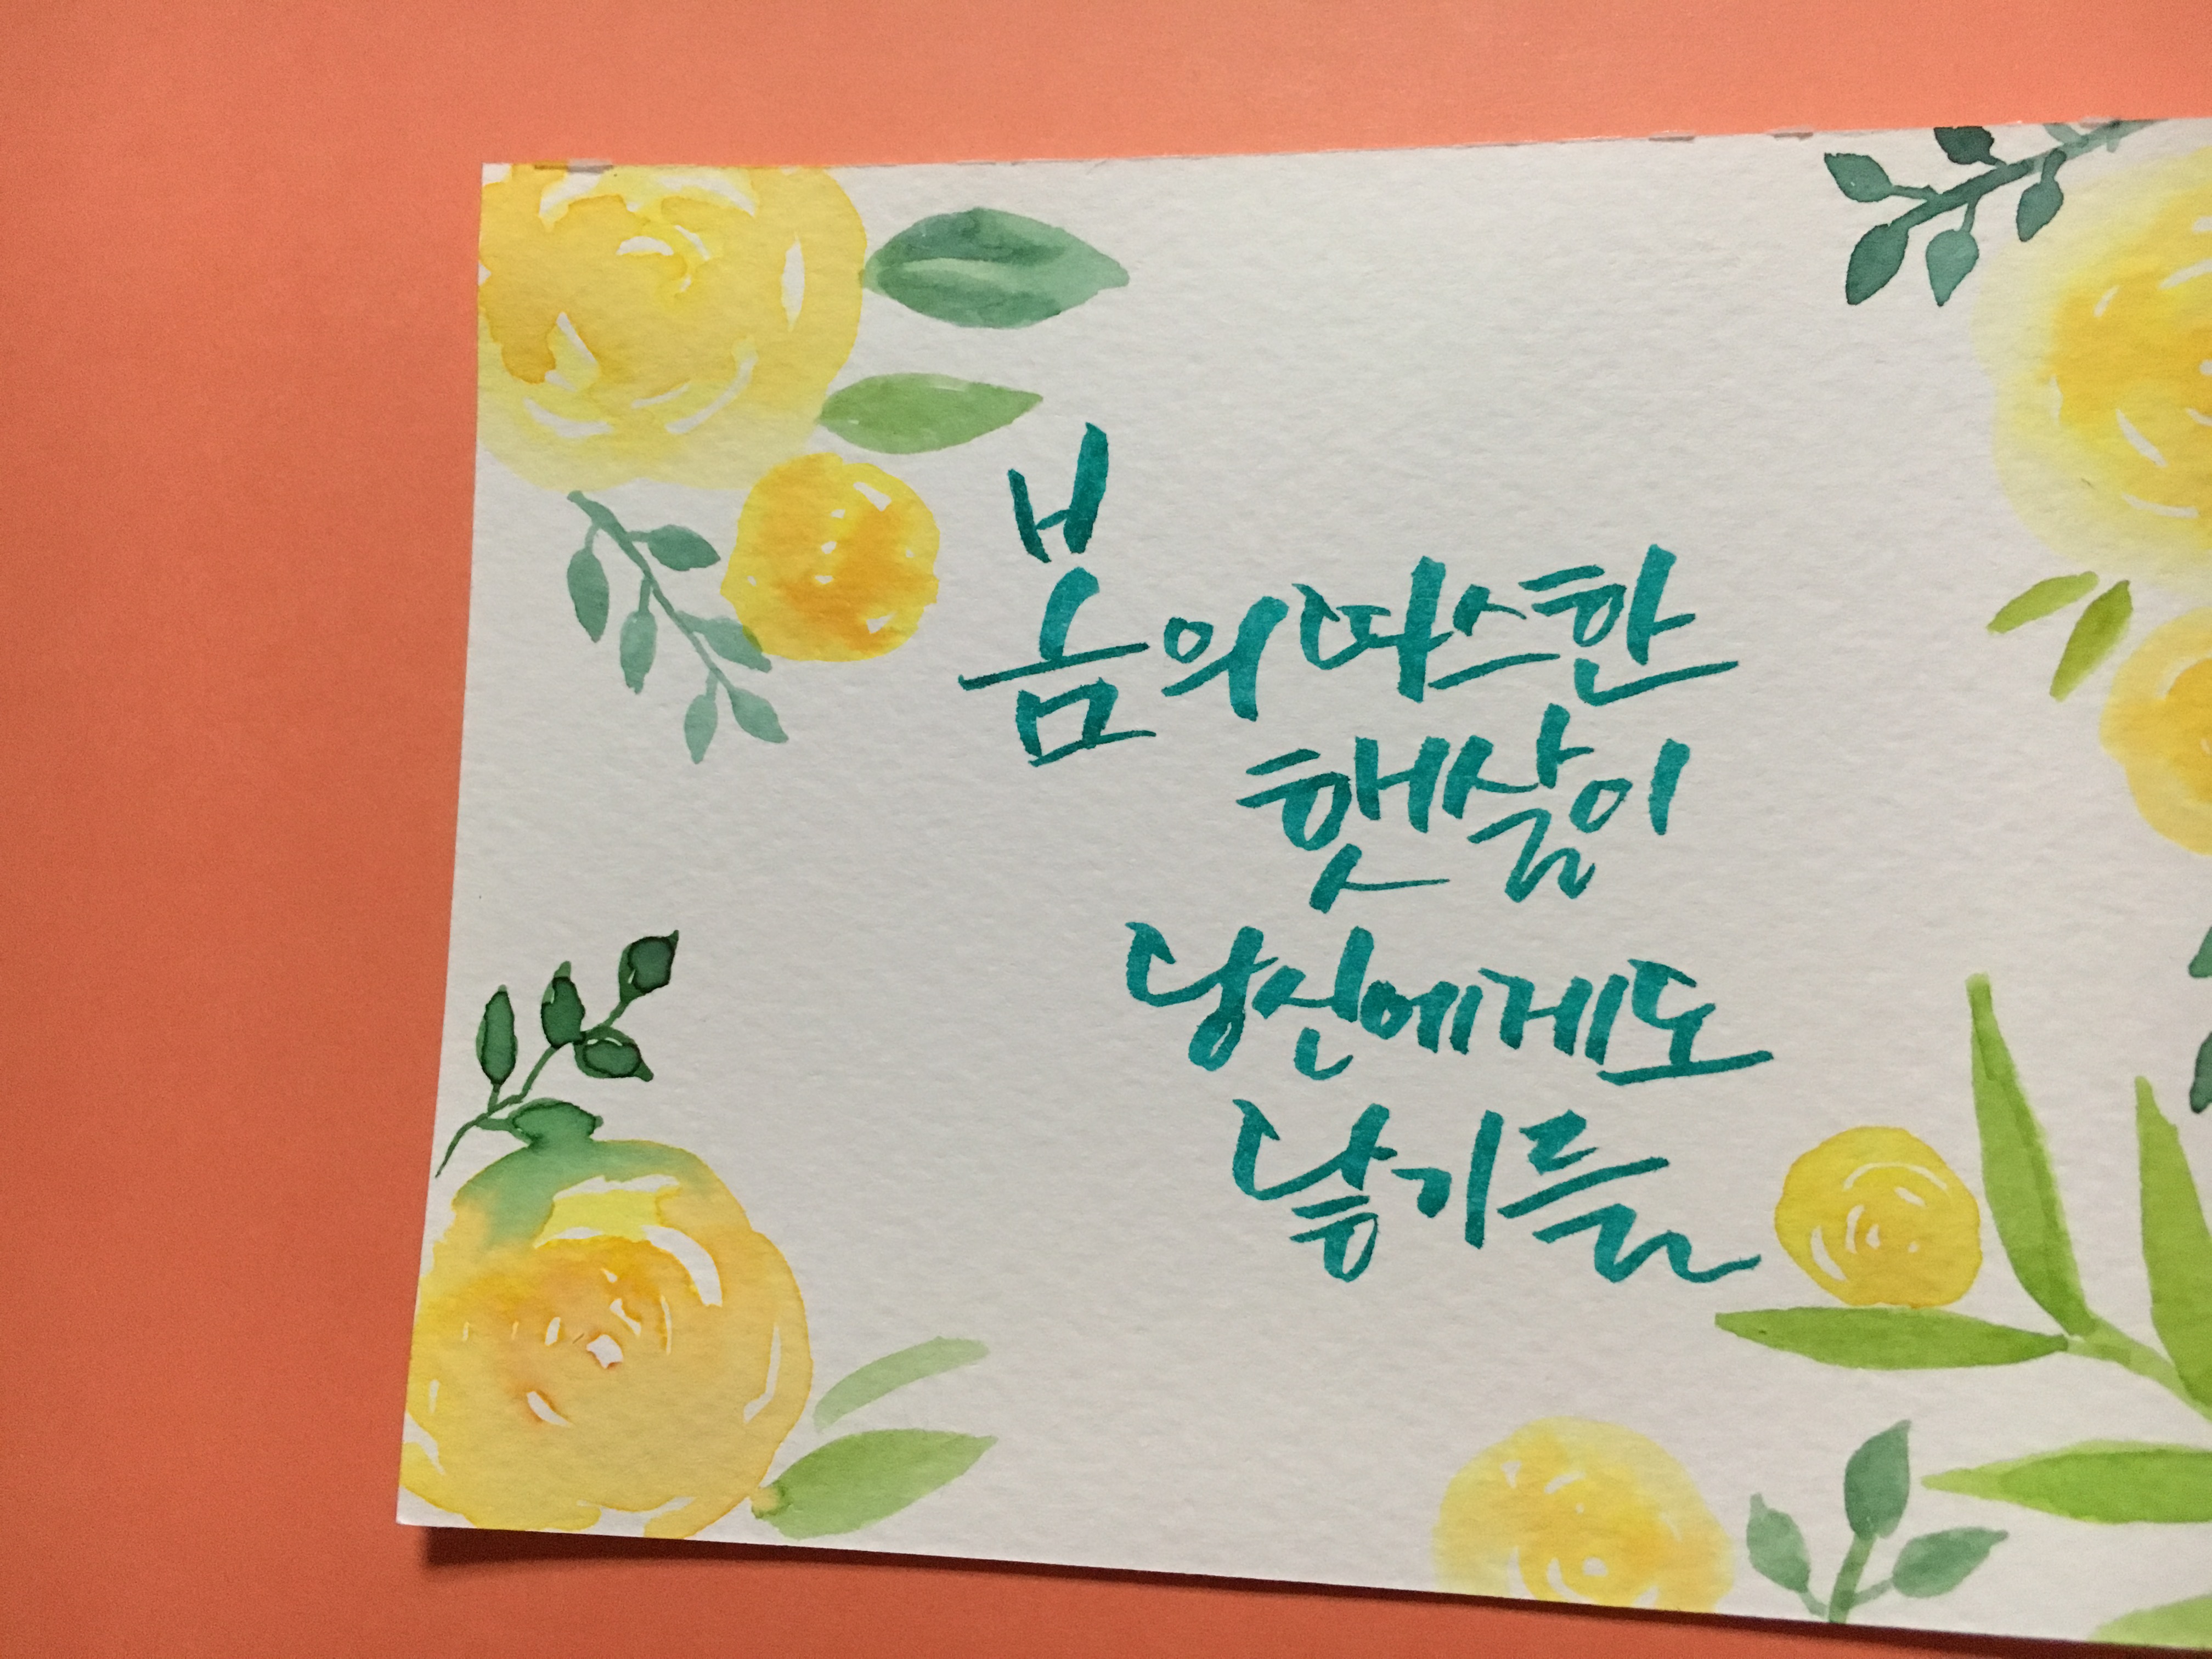 봄의 따스한
햇살이
당신에게도
닿기를